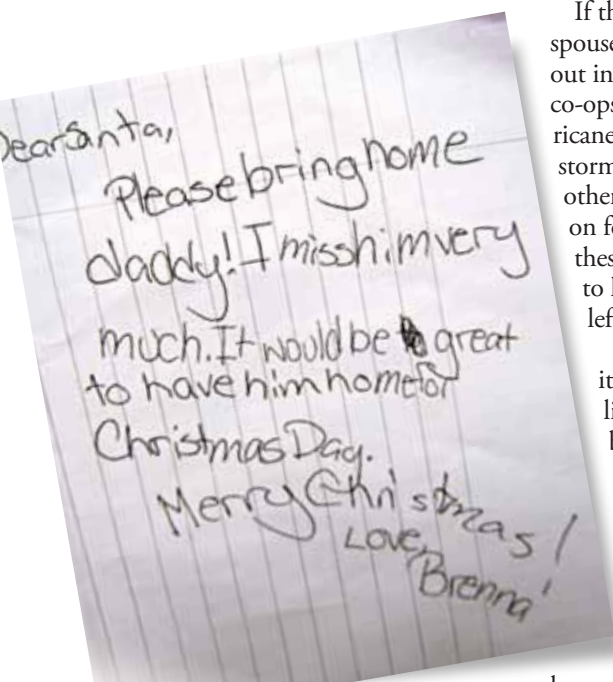 Dear Santa,
Please bring home
daddy! I miss him very
much. It would be great
to have him home for
Christmas Day.
Merry Christmas!
Love,
Brenna
If th
spouse
out in
co-ops
ricane
storm
other
on fo
thes
to
lef
it
li